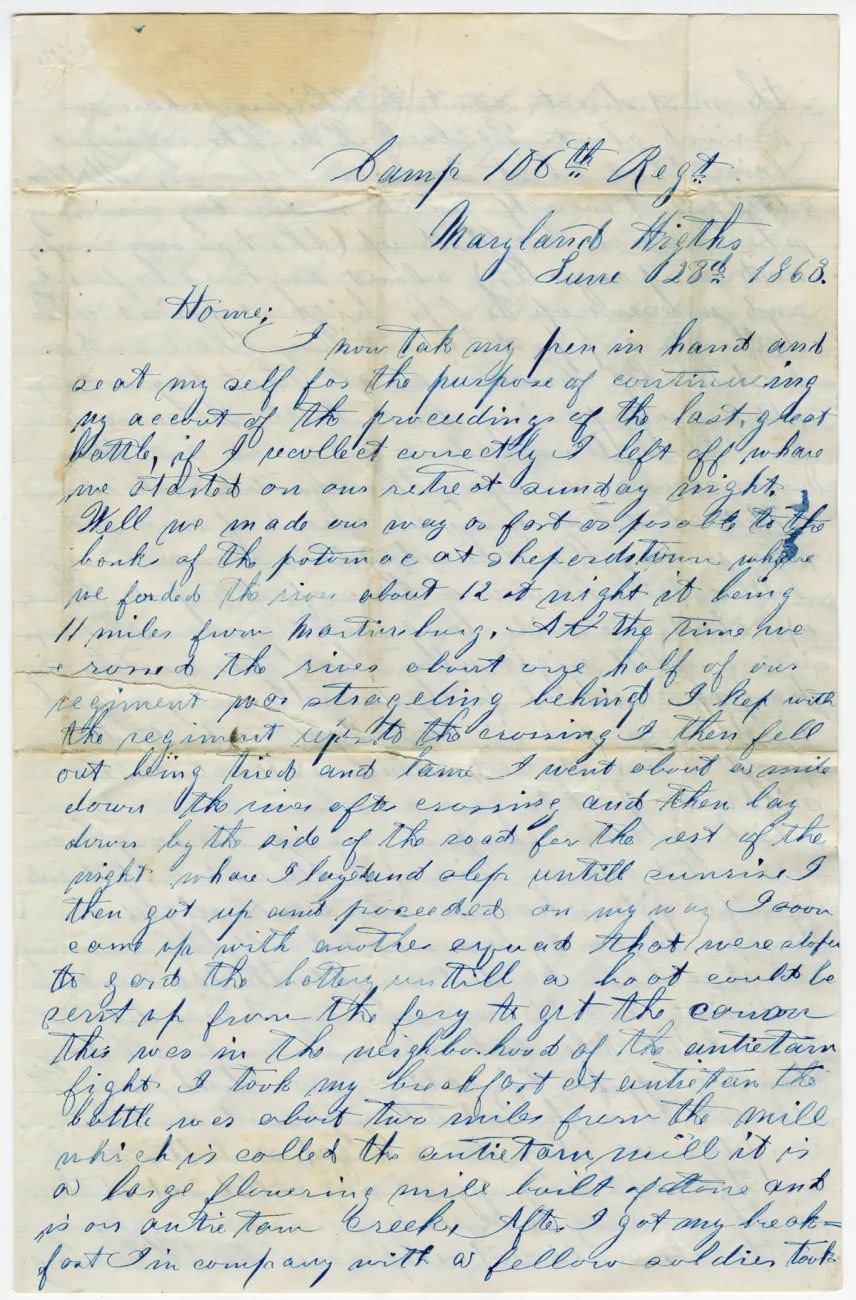 Camp 106th Regt
Maryland Higths
June 28d 1863.
Home;
I now tak my pen in hand and
seat my self for the purpose of continueing
my accout of the proceedings of the last great
battle, if I recollect correctly I left off whare
we started on our retreat sunday night.
Well we made our way as fast as posable to the
banks of the potomac at shepordstown whare
we forded the river about 12 at night it being
11 miles from Martinsburg. At the time we
crossed the river about one half of our
regiment was strageling behind I kep with
the regiment up to the crossing I then fell
out being tried and lame I went about a mile
down the river after crossing and then lay
down by the side of the road for the rest of the
night whare I layed and slep untill sunrise I
then got up and proceeded on my way I soon
came up with another squad that were stoped
to gard the battery untill a boat could be
sent up from the fery to get the canon
this was in the neighborhood of the antietam
fight I took my breakfast at antietam the
battle was about two miles from the mill
which is called the antietam mill it is
a large flowering mill built of stone and
is on antietam Creek. After I got my break=
fast I in company with a fellow soldier took